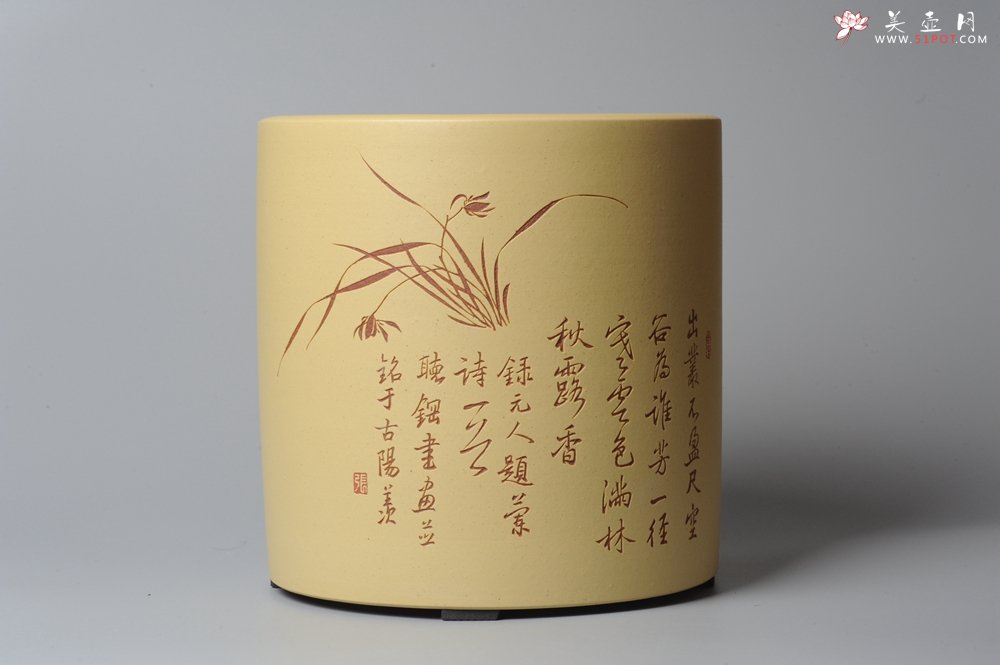 美壶网
WWW.51POT.COM
出叢不盈尺空
谷為誰芳一径
寒雲色滿林
秋露香
録元人題蘭
詩一首
聴鋼書畫並
銘于古陽羨
張